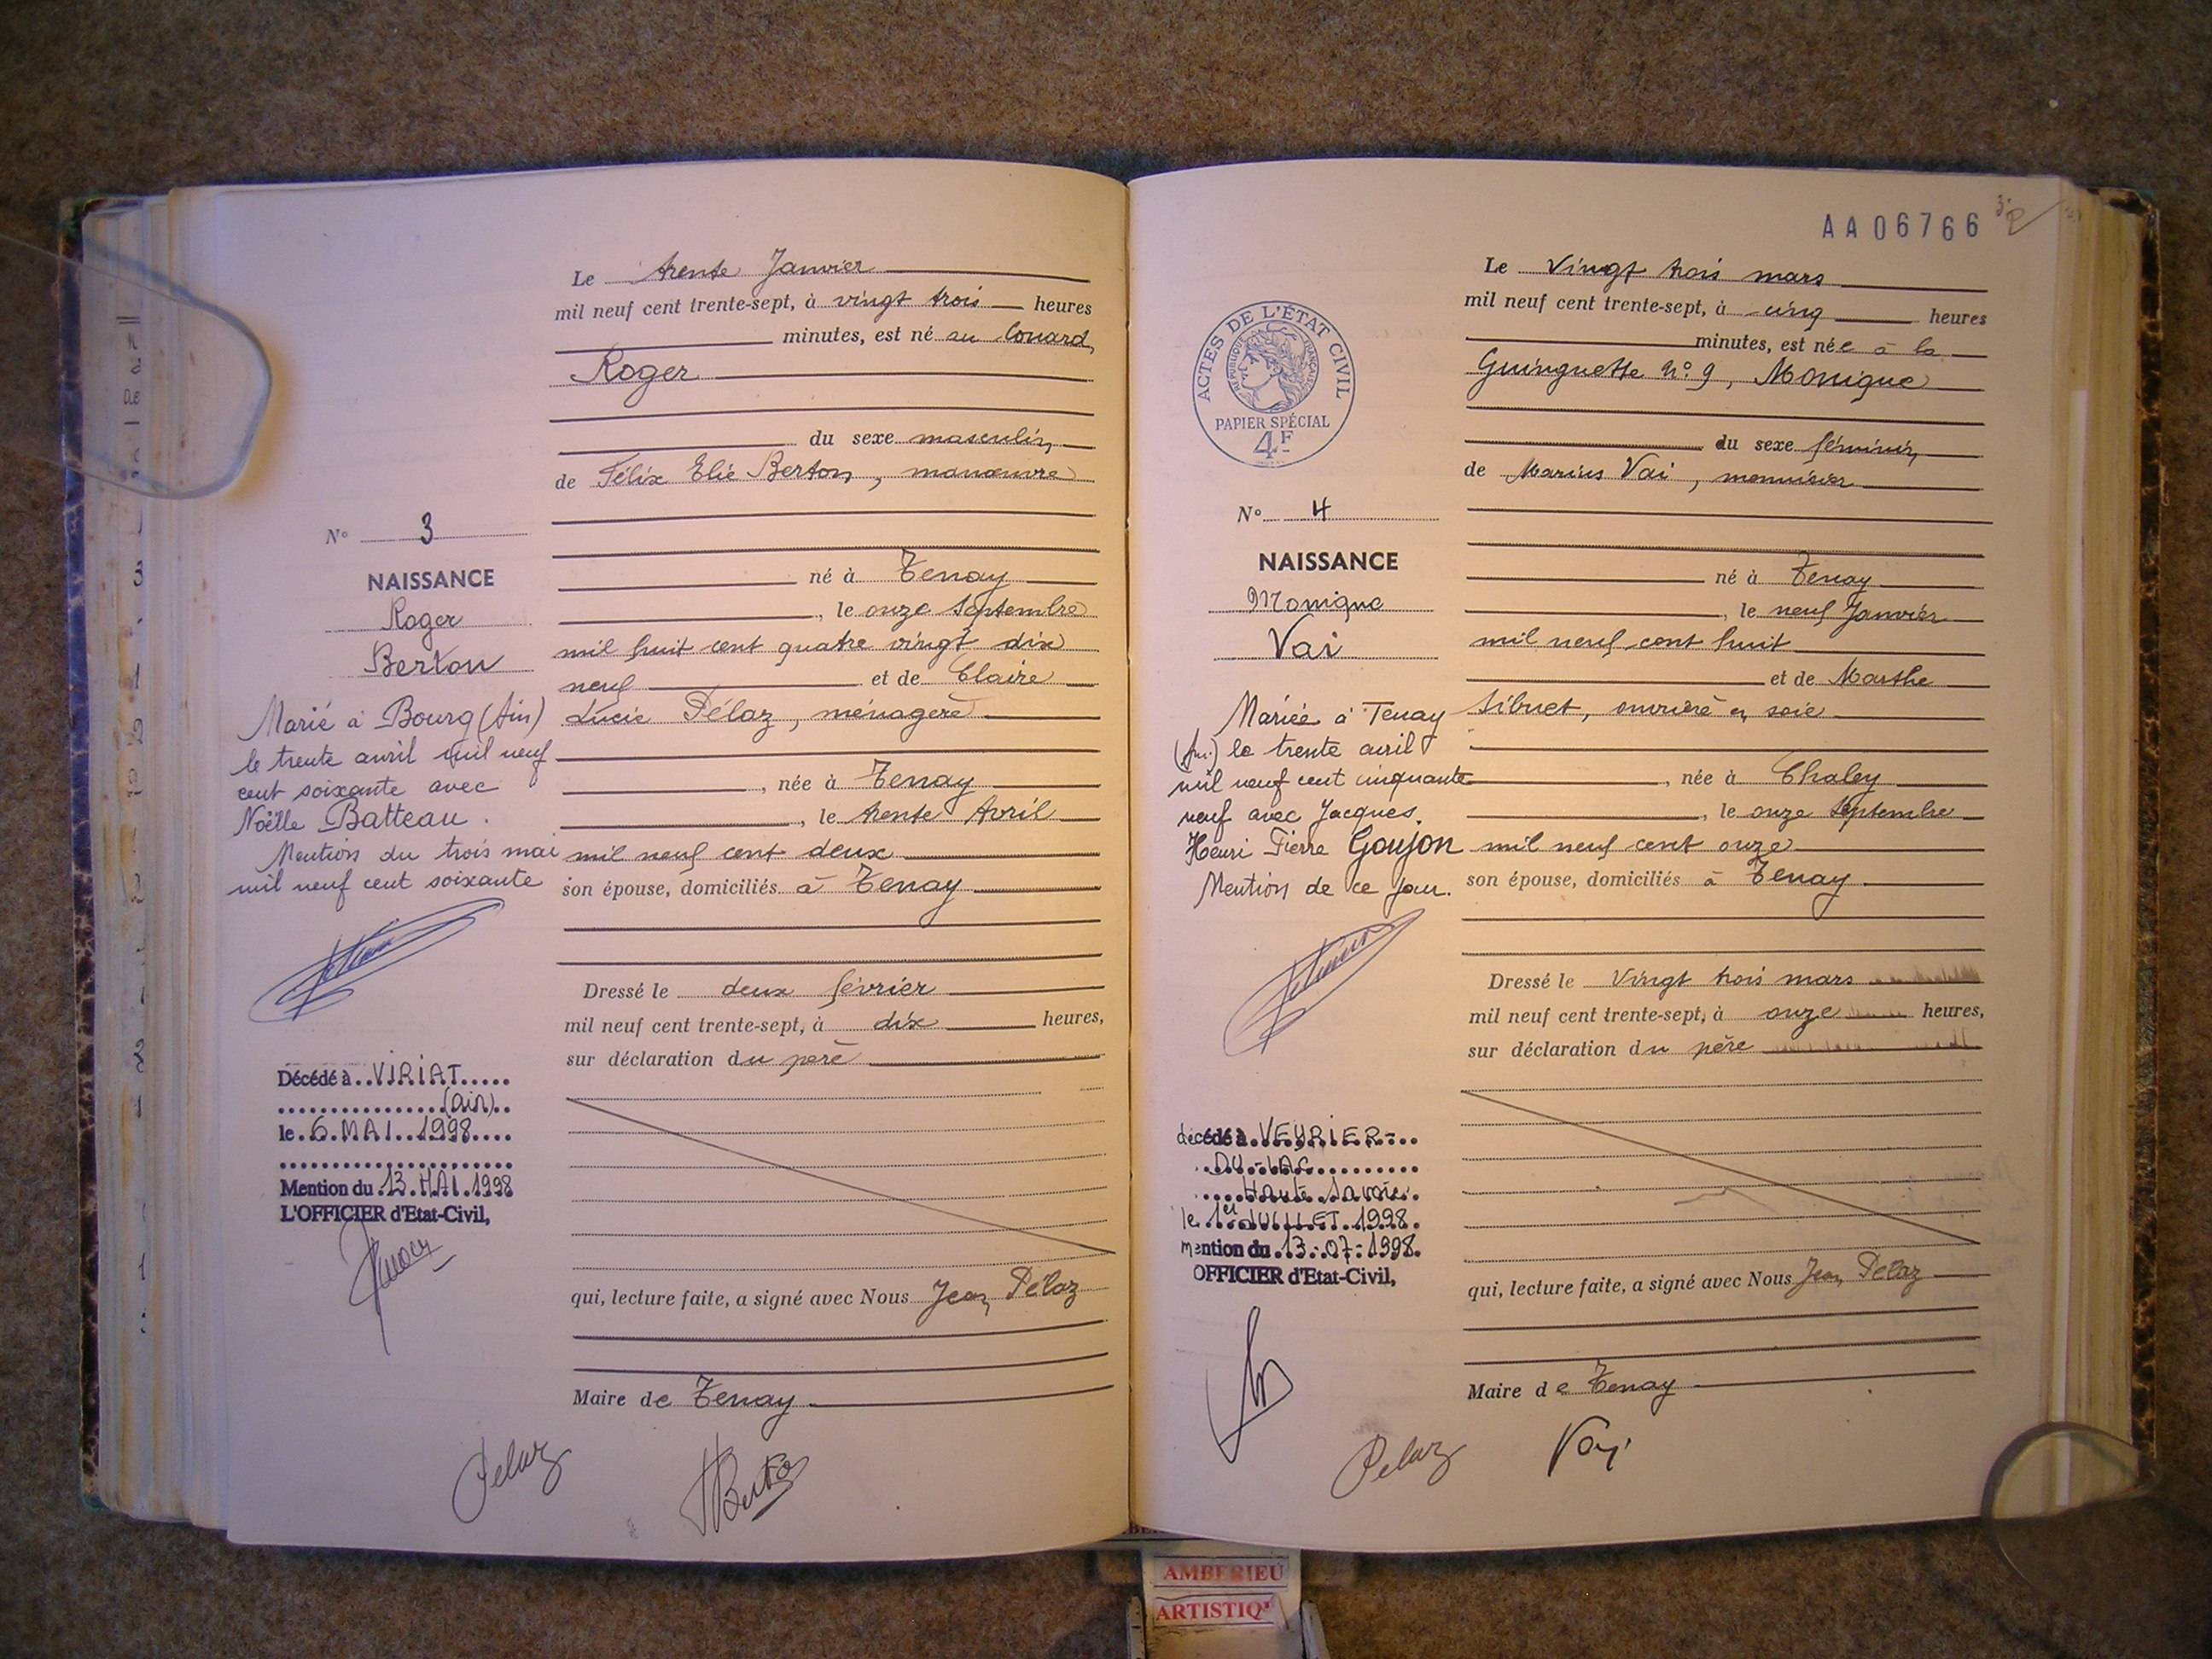 Le trente Janvier
mil neuf cent trente-sept, à vingt trois heures
minutes, est né au Couard,
Roger
du sexe masculin,
de Félix Elie Berton, manœuvre
N° 3
NAISSANCE
Roger
Berton
né à Tenay
, le onze Septembre
mil huit cent quatre vingt dix
neuf et de Claire
Lucie Pélaz, ménagère
, née à Tenay
, le trente Avril
mil neuf cent deux
son épouse, domiciliés à Tenay
Marié à Bourg (Ain)
le trente avril mil neuf
cent soixante avec
Noëlle Batteau.
Mention du trois mai
mil neuf cent soixante
Dressé le deux février
mil neuf cent trente-sept, à dix heures,
sur déclaration du père
Décédé à VIRIAT
(Ain)
le 6 MAI 1998
Mention du 13 MAI 1998
L'OFFICIER d'Etat-Civil,
qui, lecture faite, a signé avec Nous Jean Pélaz
Maire de Tenay
Pelaz
Berton
AA06766
Le Vingt trois mars
mil neuf cent trente-sept, à cinq heures
minutes, est née à la
Guinguette n° 9, Monique
du sexe féminin,
de Marius Vai, menuisier
ACTES DE L'ÉTAT CIVIL
RÉPUBLIQUE FRANÇAISE
PAPIER SPÉCIAL
4F
N° 4
NAISSANCE
Monique
Vai
né à Tenay
, le neuf Janvier
mil neuf cent huit
et de Marthe
Sibuet, ouvrière en soie
, née à Chaley
, le onze Septembre
mil neuf cent onze
son épouse, domiciliés à Tenay
Mariée à Tenay
(Ain) le trente avril
mil neuf cent cinquante
neuf avec Jacques,
Henri Pierre Goujon
Mention de ce jour.
Dressé le Vingt trois mars
mil neuf cent trente-sept, à onze heures,
sur déclaration du père
décédé à VEYRIER-
DU-LAC
Haute Savoie
le 1er JUILLET 1998
mention du 13-07-1998
OFFICIER d'Etat-Civil,
qui, lecture faite, a signé avec Nous Jean Pélaz
Maire de Tenay
Pelaz
Vai
AMBERIEU
ARTISTIQ